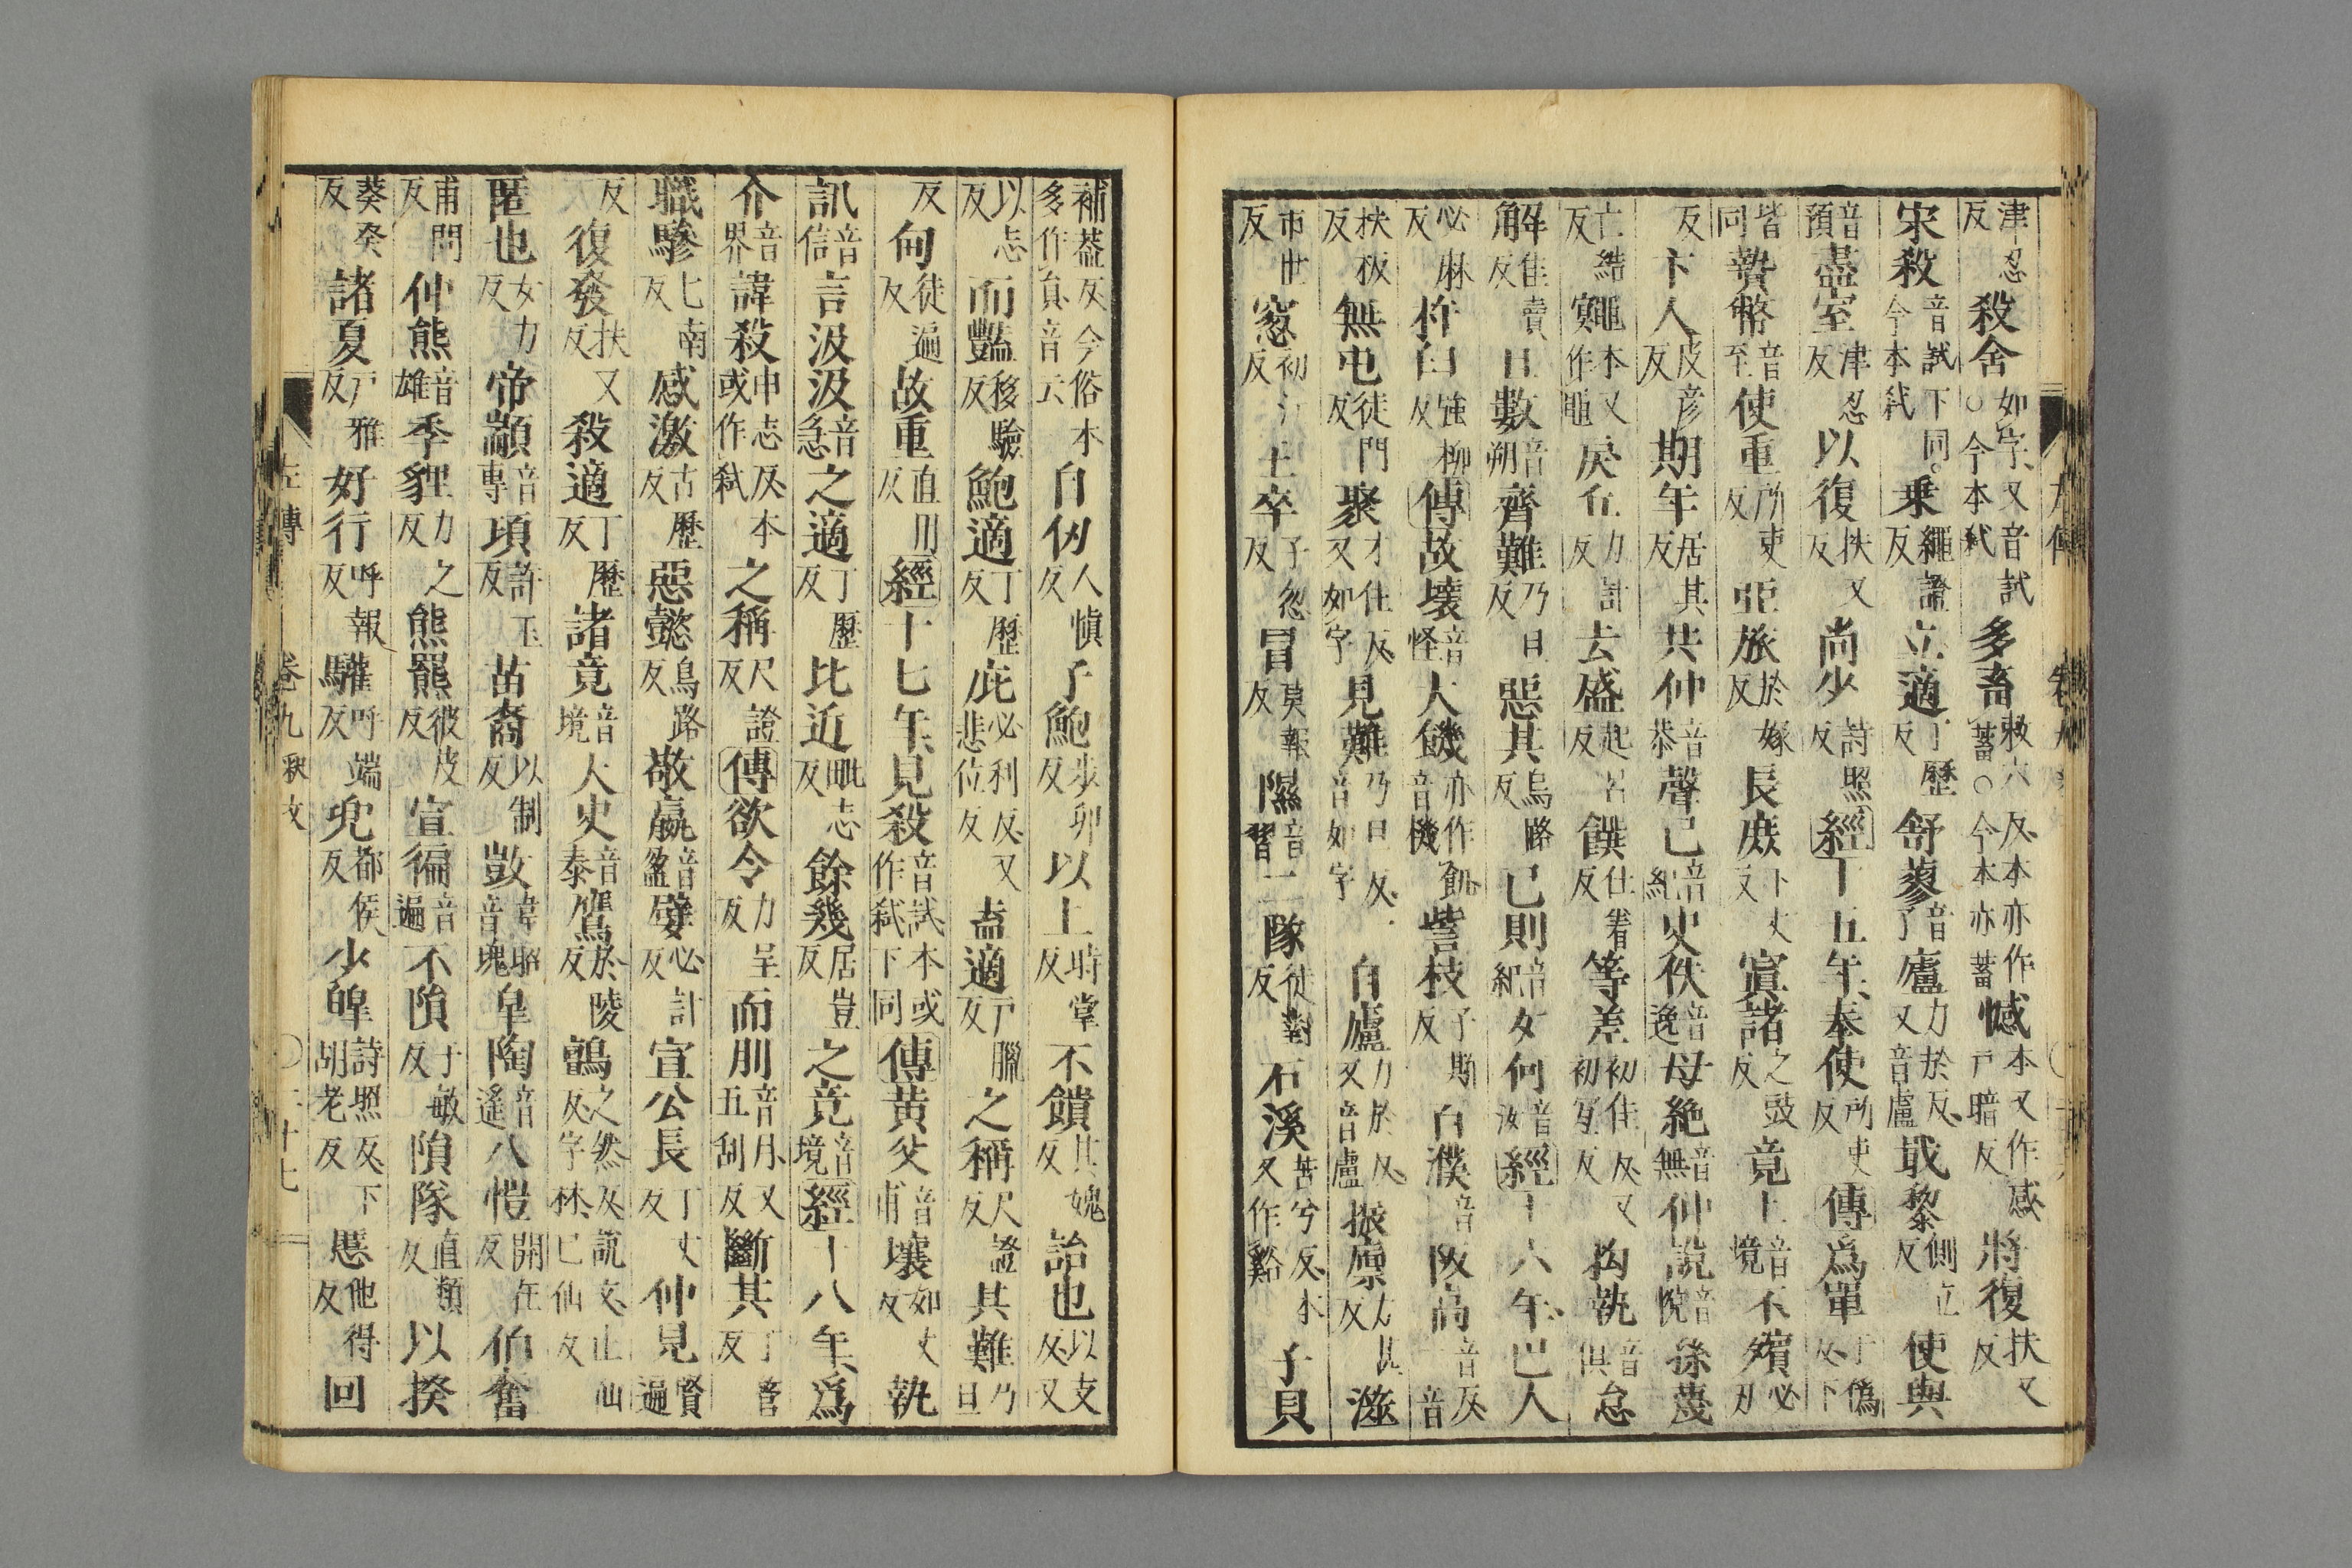 津忍反殺舍如字又音試○今本弒多畜敕六反本亦作蓄○今本亦蓄憾本又作感戸暗反將復扶又反
宋殺音試下同今本弒乗繩證反立適丁歷反舒蓼音了廬力於反又音盧戢黎側立反使與
音預盡室津忍反以復扶又反尚少詩照反經十五年奉使所吏反傳爲單于偽反下
皆同贄幣音至使重所吏反亞旅於嫁反長庶丁丈反寘諸之豉反竟上音境不殯必刃
反卞人皮彦反期年居其反共仲音恭聲己音紀史佚音逸毋絶音無仲說音悅孫蔑
亡結反寘黽本又作黽戾丘力計反去盛起呂反饌仕眷反等差初佳反又初宜反拘執音俱怠
解佳賣反日數音朔齊難乃旦反惡其烏路反己則音紀女何音汝經十六年巴人
必麻反杵臼強柳反傳故壞音怪大饑亦作飢音機訾枝子斯反百濮音阪高音反音
扶板反無屯徒門反聚才住反又如字見難乃旦反音如字自廬力於反又音盧振廪力甚反滋
市世反窓初江反士卒子忽反冒莫報反隰音習二隊徒對反石溪苦兮反本又作谿子貝
補蓋反今俗本多作負音云自仞人慎反子鮑步卯反以上時掌反不饋其媿反詒也以支反又
以志反而豔移驗反鮑適丁歷反庇必利反又悲位反盍適戸臘反之稱尺證反其難乃旦
反甸徒遍反故重直用反經十七年見殺音試本或作弒下同傳黄父音甫壤如丈反執
訊音信言汲汲音急之適丁歷反比近毗志反餘幾居豈反之竟音境經十八年爲
介音界諱殺申志反本或作弒之稱尺證反傳欲令力呈反而刖音月又五刮反斷其丁管反
職驂七南反感激古歷反惡懿烏路反敬嬴音盈嬖必計反宣公長丁丈反仲見賢遍
反復發扶又反殺適丁歷反諸竟音境大史音泰鷹於陵反鸇之然反說文止仙反字林己仙反
匿也女力反帝顓音專頊許玉反苗裔以制反敳韋昭音瑰皐陶音遙八愷開在反伯奮
甫問反仲熊音雄季貍力之反熊羆彼皮反宣徧音遍不隕于敏反隕隊直類反以揆
葵癸反諸夏戸雅反好行呼報反驩呼端反兜都侯反少皥詩照反下胡老反慝他得反回
左傳 卷九 二十七